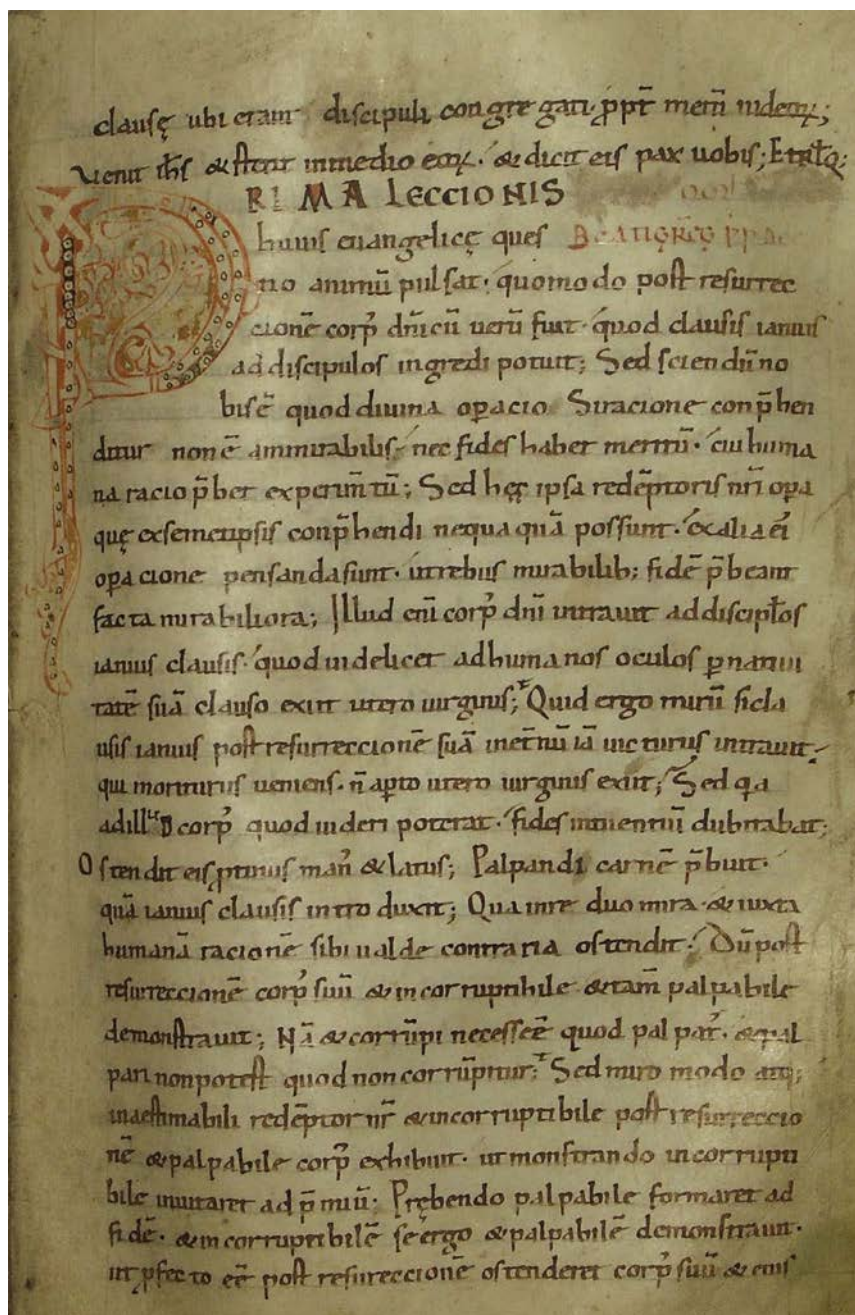 clausę ubi erant discipuli congregati· ꝓpt̄ metū iudeoꝝ;
Venit ih̄s & stetit in medio eoꝝ· & dicit eis pax uobis; Et rl̄q;
PRIMA LECCIONIS
huius euangelicę ques
tio animū pulsat· quomodo post resurrec
cionē corpꝰ dn̄icū uerū fuit· quod clausis ianuis
ad discipulos ingredi potuit; Sed sciendū no
bis ē quod diuina oꝑacio Si racione conp̄hen
ditur non ē ammirabilis· nec fides habet meritū· cui huma
na racio p̄bet experim̄tū; Sed hęc ipsa redēptoris nr̄i oꝑa
quę ex semetipsis conp̄hendi nequaquā possunt· ex alia eiꝰ
oꝑacione pensanda sunt· ut rebus mirabilib; fidē p̄beant
facta mirabiliora; Illud eni corpꝰ dn̄i intrauit ad discipl̄os
ianuis clausis· quod uidelicet ad humanos oculos ꝑ natiui
tatē suā clauso exiit utero uirginis; Quid ergo mirū si cla
usis ianuis post resurreccionē suā in et̄nū iā uicturus intrauit·
qui moriturus ueniens· n̄ aꝑto utero uirginis exiit; Sed q̄a
ad illud corpꝰ quod uideri poterat· fides intuentiū dubitabat;
Ostendit eis ptinus manꝰ & latus; Palpandā carnē p̄buit·
quā ianuis clausis introduxit; Qua in re duo mira· & iuxta
humanā racionē sibi ualde contraria ostendit· Dū post
resurreccionē corpꝰ suū & incorruptibile & tam̄ palpabile
demonstrauit; Nā & corrūpi necesse ē quod palpat̉· & pal
pari non potest quod non corrūpitur; Sed miro modo atq;
inaestimabili redēptor nr̄ & incorruptibile post resurreccio
nē & palpabile corpꝰ exhibuit· ut monstrando incorrupti
bile inuitaret ad p̄miū· Prębendo palpabile formaret ad
fidē· & incorruptibilē se ergo & palpabilē demonstrauit·
ut ꝓfecto eē post resureccionē ostenderet corpꝰ suū & eius